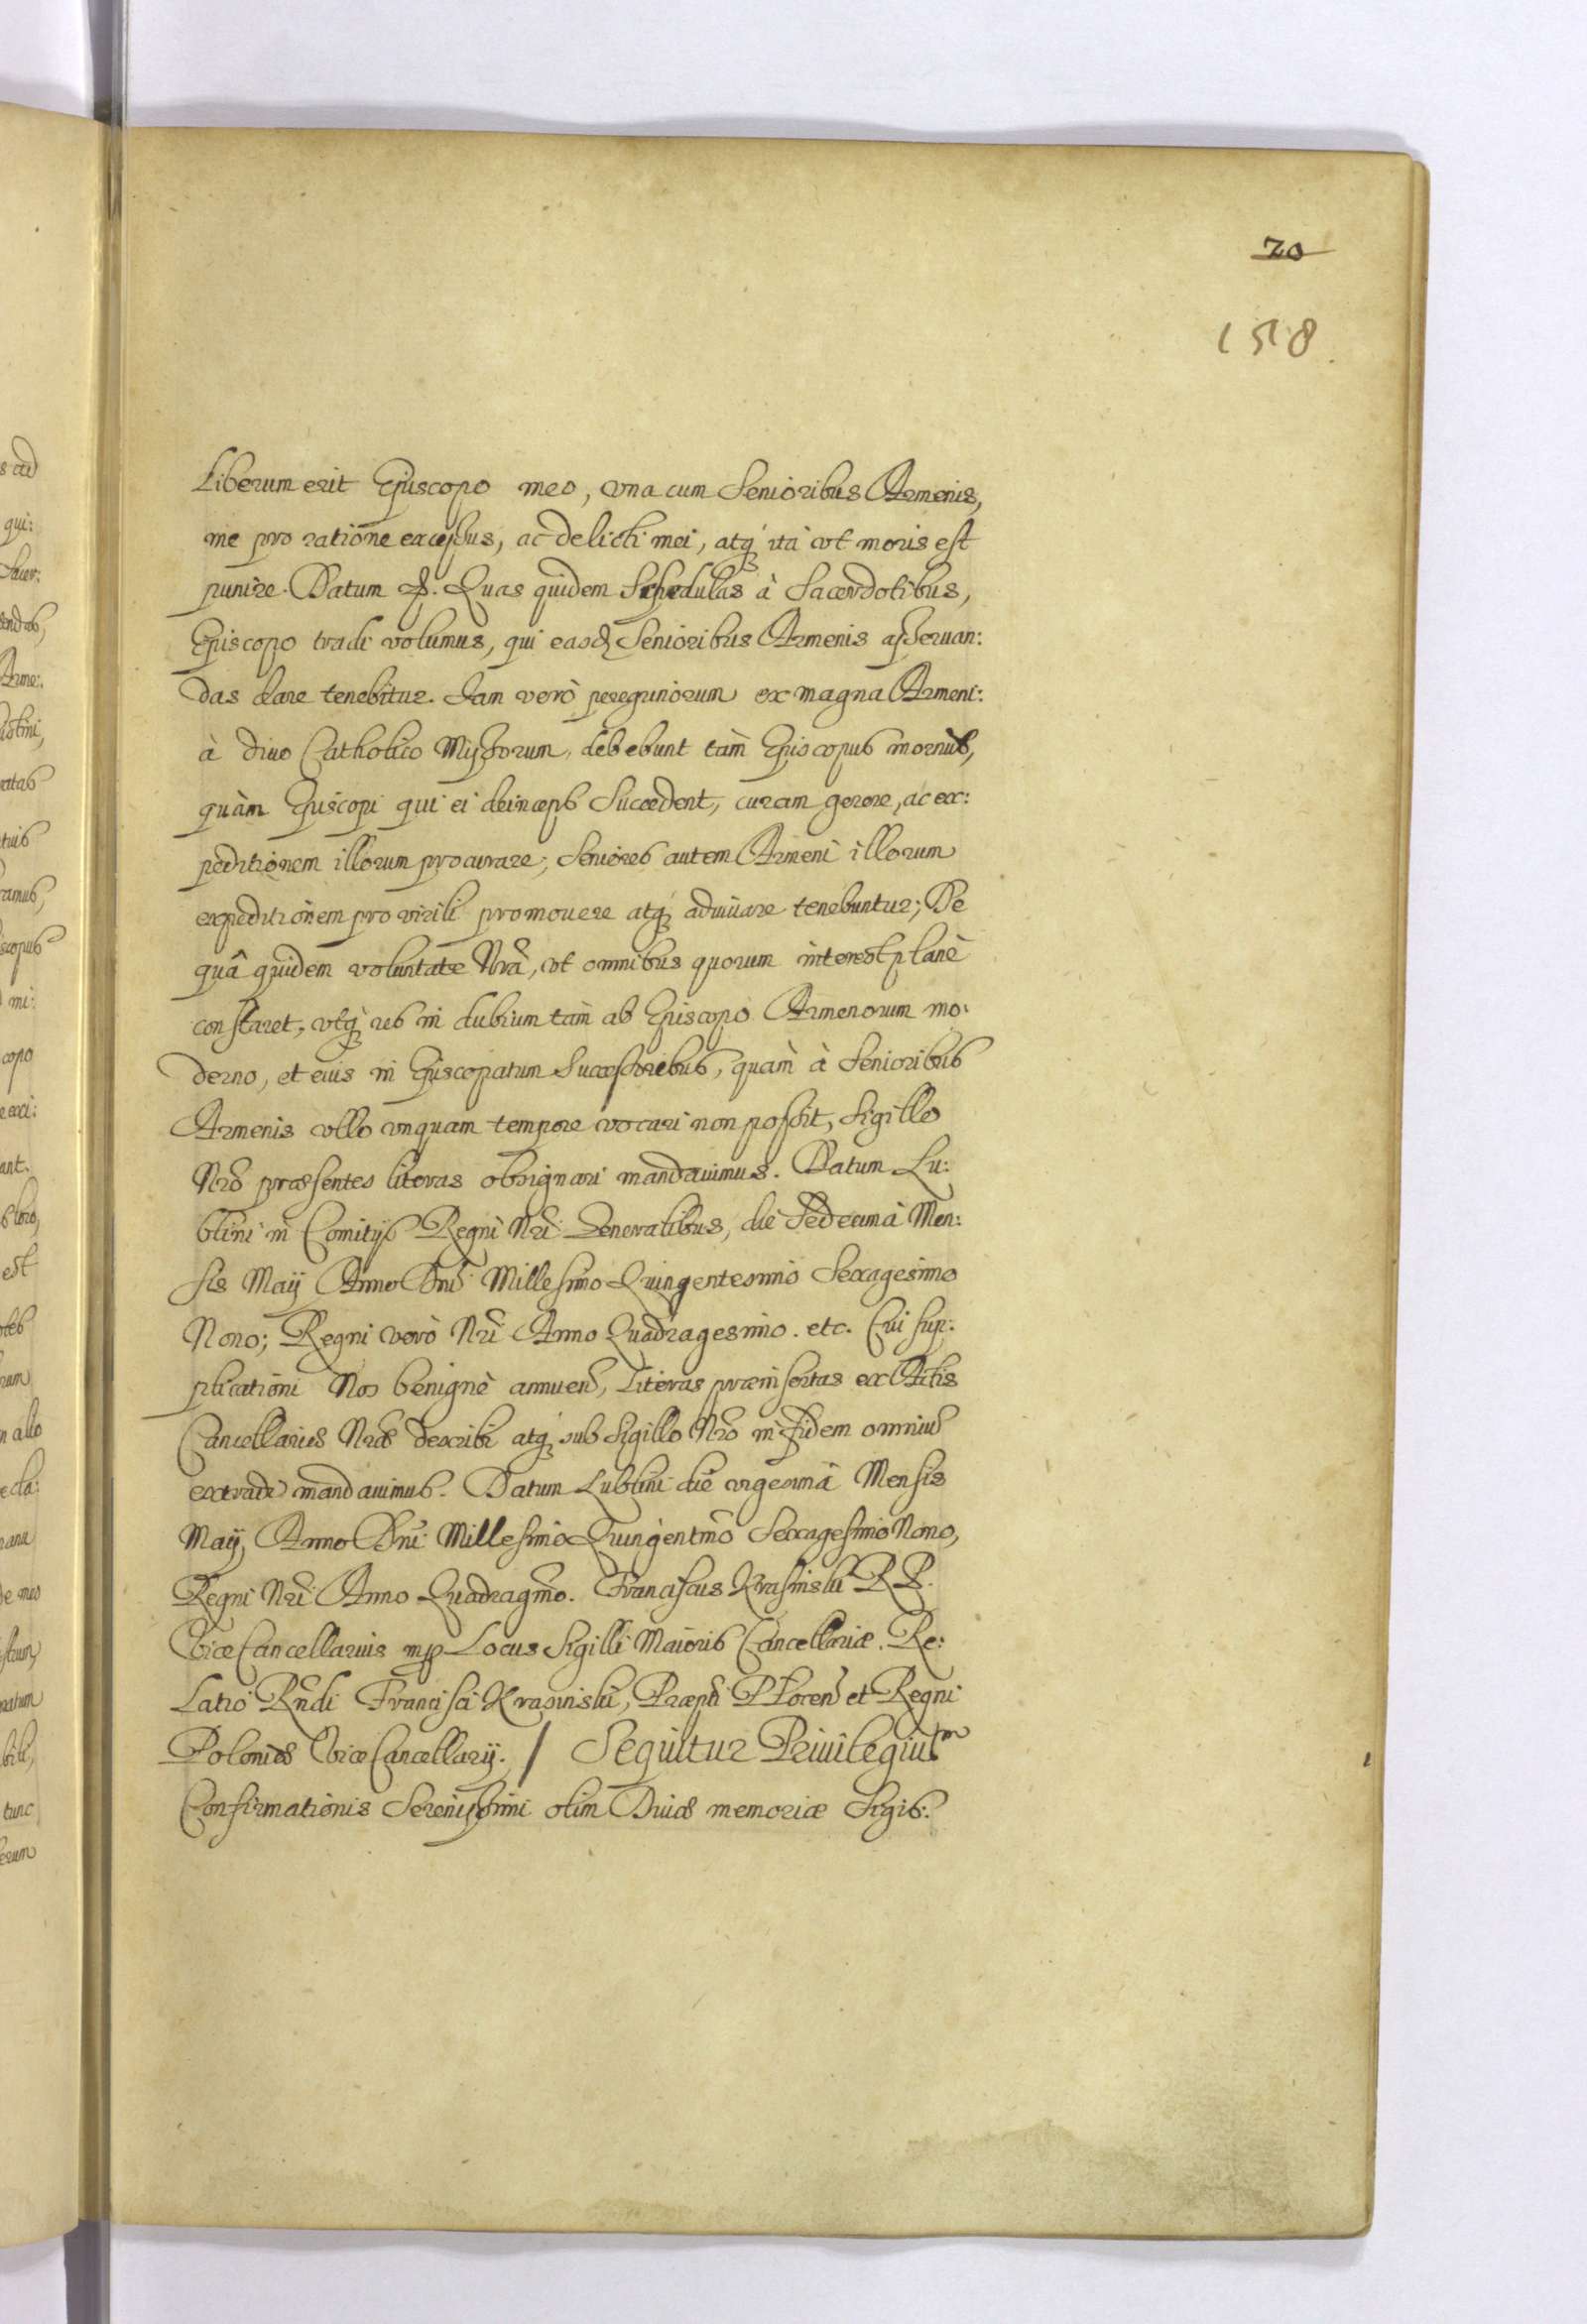 20
158
Liberum erit Episcopo meo, vna cum Senioribus Armenis,
me pro ratione excessus, ac delicti mei, atq́ ita vt moris est
punire. Datum &. Quas quidem Schedulas à Sacerdotibus,
Episcopo tradi volumus, qui easd Senioribus Armenis asseruan:
das dare tenebitur. Iam verò peregrinorum ex magna Armeni:
à diuo Catholico Missorum, debebunt tàm Episcopus mornus,
quàm Episcopi qui ei deinceps Succedent, curam gerere, ac ex:
peditionem illorum procurare; Seniores autem Armeni illorum
expeditionem pro virili promouere atq́ adiuuare tenebuntur; De
quâ quidem voluntate Nrã, vt omnibus quorum interest planè
constaret, vtq́ res in dubium tàm ab Episcopo Armenorum mo:
derno, et eius in Episcopatum Successoribus, quàm à Senioribus
Armenis vllo vnquam tempore vocari non possit, Sigillo
Nrõ præsentes literas obsignari mandauimus. Datum Lu:
blini in Comitijs Regni Nrĩ Generalibus, die Sedecima Men:
sis Maij Anno Dnĩ Millesimo Quingentesimo Sexagesimo
Nono; Regni verò Nrĩ Anno Quadragesimo. etc. Cui sup:
plicationi Nos benignè annuen̄, Literas præinsertas ex Actis
Cancellariæ Nræ describi atq́ sub Sigillo Nrõ in fidem omniũ
extradi mandauimus. Datum Lublini die vigesimâ Mensis
Maij, Anno Dnĩ Millesimo Quingentmõ Sexagesimo Nono,
Regni Nrĩ Anno Quadragmõ. Franciscus Krasinski R P.
Vice Cancellarius mp Locus Sigilli Maioris Cancellariæ. Re:
Latio Rndi Francisci Krasinski, Præpti Plocen̄ et Regni
Poloniæ Vice Cancellarij. / Sequitur Priuilegium
Confirmationis Serenissimi olim Diuæ memoriæ Sigis: